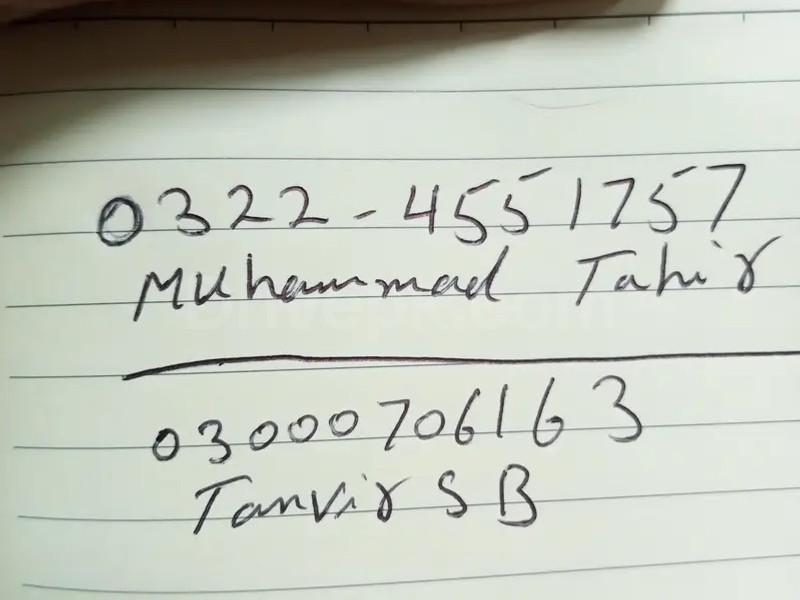 0322-4551757
Muhammad Tahir
03000706163
Tanvir SB